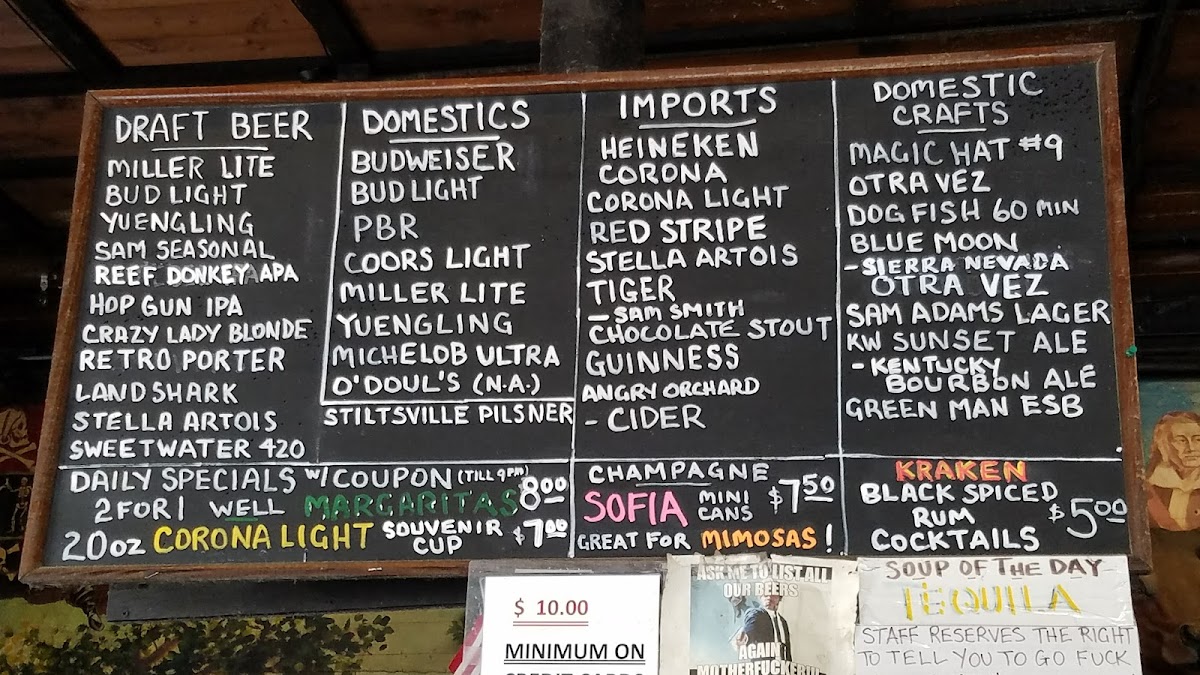 DRAFT BEER
MILLER LITE
BUD LIGHT
YUENGLING
SAM SEASONAL
REEF DONKEY APA
HOP GUN IPA
CRAZY LADY BLONDE
RETRO PORTER
LANDSHARK
STELLA ARTOIS
SWEETWATER 420
DOMESTICS
BUDWEISER
BUD LIGHT
PBR
COORS LIGHT
MILLER LITE
YUENGLING
MICHELOB ULTRA
O'DOUL'S (N.A.)
STILTSVILLE PILSNER
IMPORTS
HEINEKEN
CORONA
CORONA LIGHT
RED STRIPE
STELLA ARTOIS
TIGER
- SAM SMITH
CHOCOLATE STOUT
GUINNESS
ANGRY ORCHARD
- CIDER
DOMESTIC
CRAFTS
MAGIC HAT #9
OTRA VEZ
DOGFISH 60 MIN
BLUE MOON
- SIERRA NEVADA
OTRA VEZ
SAM ADAMS LAGER
KW SUNSET ALE
- KENTUCKY
BOURBON ALE
GREEN MAN ESB
DAILY SPECIALS W/ COUPON (TILL 9PM)
2 FOR 1 WELL MARGARITAS 8.00
20 OZ CORONA LIGHT SOUVENIR CUP $7.00
CHAMPAGNE
SOFIA MINI CANS $7.50
GREAT FOR MIMOSAS!
KRAKEN
BLACK SPICED
RUM $5.00
COCKTAILS
$ 10.00
MINIMUM ON
CREDIT CARDS
ASK ME TO LIST ALL
OUR BEERS
AGAIN
MOTHERFUCKER!!
SOUP OF THE DAY
TEQUILA
STAFF RESERVES THE RIGHT
TO TELL YOU TO GO FUCK